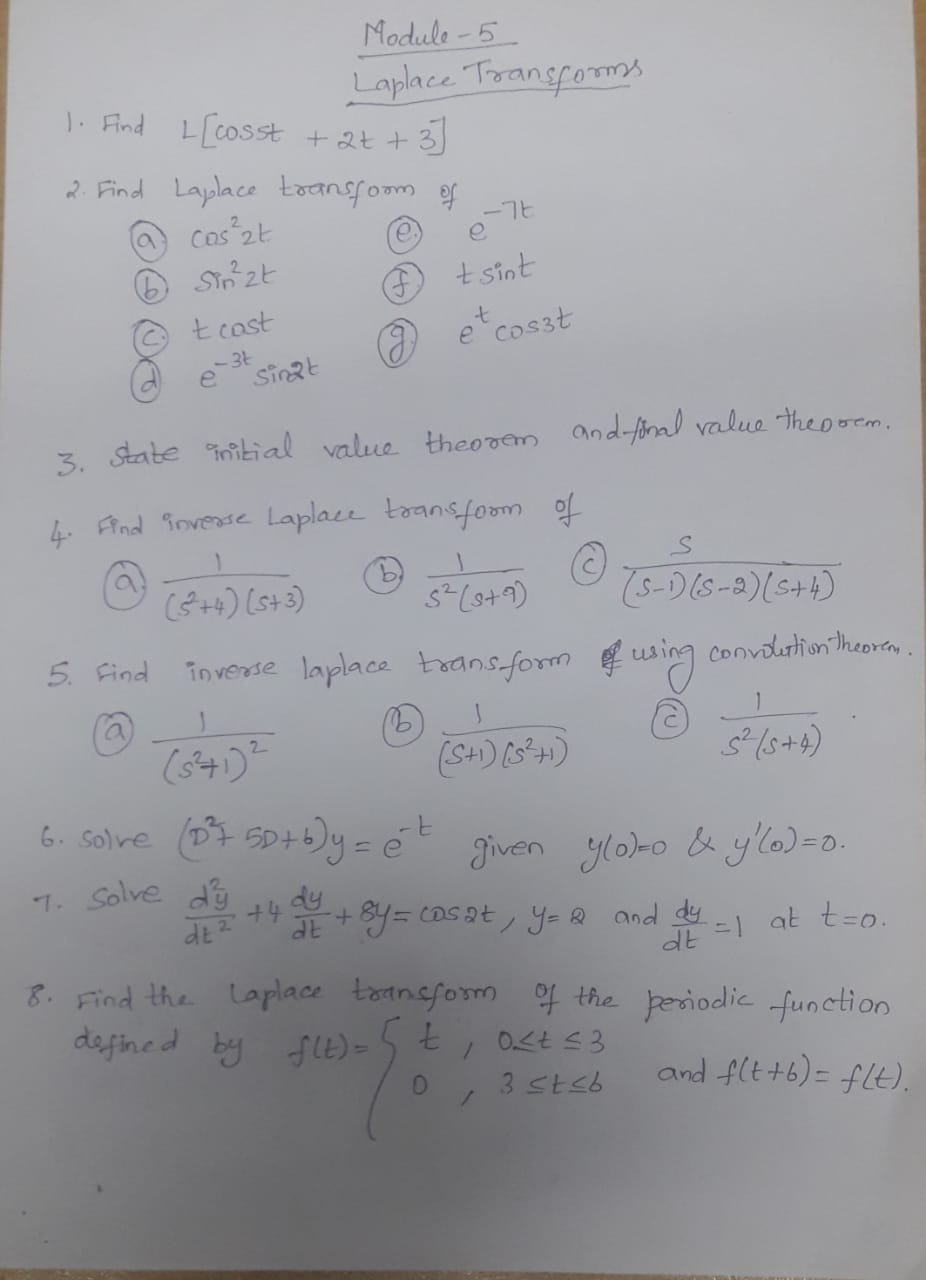 Module - 5
Laplace Transforms
1. Find L[cos5t + 2t + 3]
2. Find Laplace transform of
(a) cos²2t (e) e^-7t
(b) sin²2t (f) t sint
(c) t cost (g) e^t cos3t
(d) e^-3t sin2t
3. State initial value theorem and final value theorem.
4. Find inverse Laplace transform of
(a) 1/(s²+4)(s+3) (b) 1/s²(s+9) (c) s/(s-1)(s-2)(s+4)
5. Find inverse laplace transform using convolution theorem.
(a) 1/(s²+1)² (b) 1/(s+1)(s²+1) (c) 1/s²(s+4)
6. Solve (D²+ 5D+6)y = e^-t given y(0)=0 & y'(0)=0.
7. Solve d²y/dt² +4 dy/dt + 8y = cos2t, y=2 and dy/dt =1 at t=0.
8. Find the Laplace transform of the periodic function
defined by f(t)= { t , 0<t≤3
0 , 3≤t≤6 and f(t+6)= f(t).